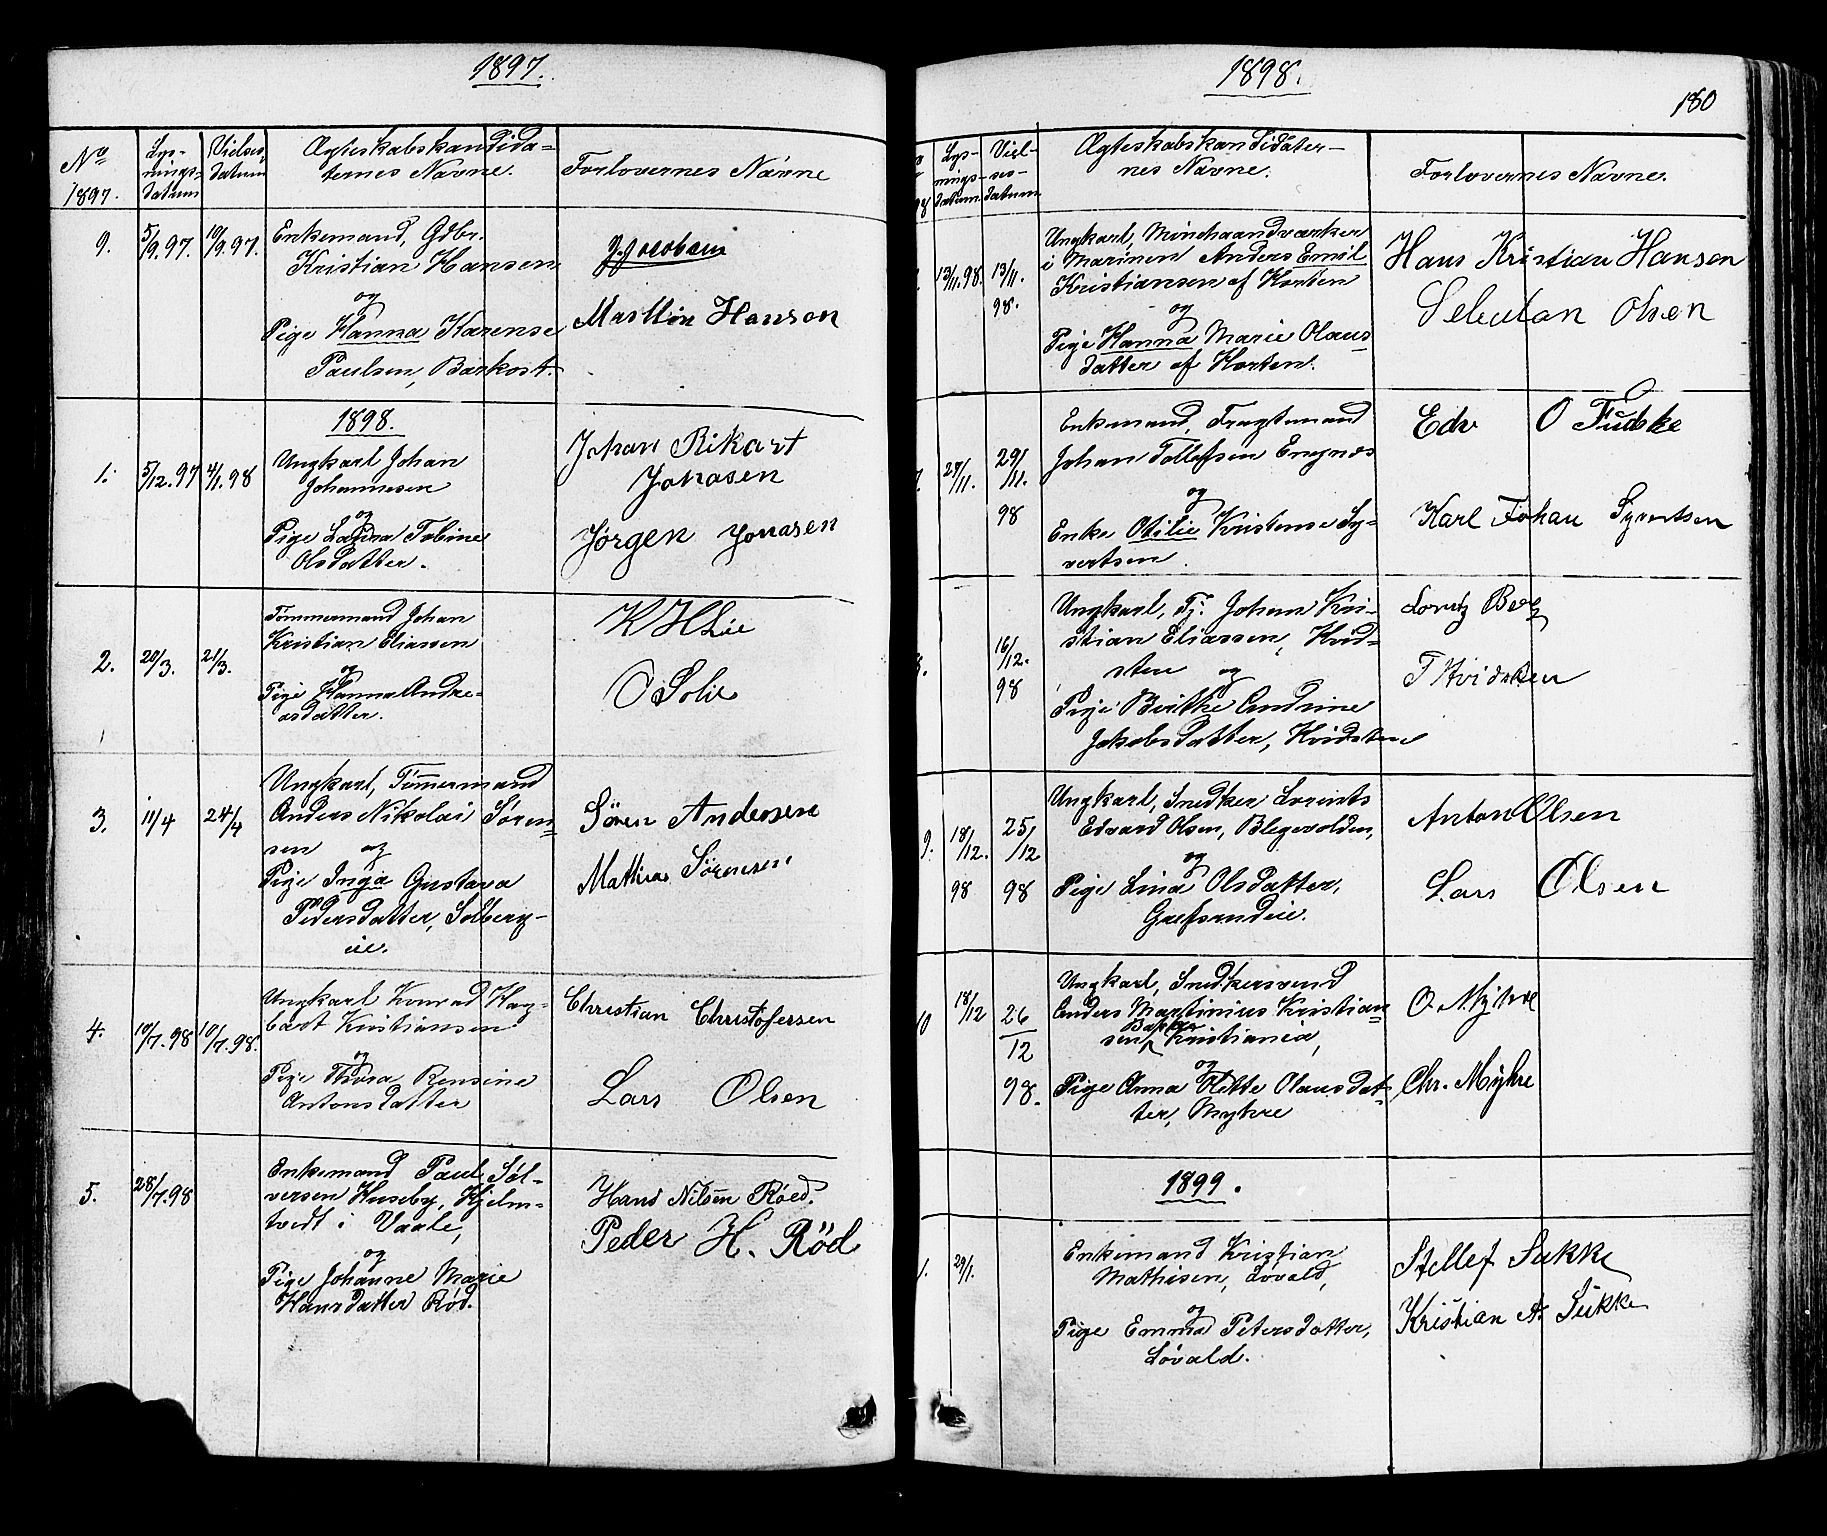 1897.
No
1897.
Lys-
nings-
datum
Vielses-
datum
Ægteskabskandida-
ternes Navne.
Forlovernes Navne
9.
5/9.97.
10/9.97.
Enkemand, Gdbr.
Kristian Hansen
og
Pige Hanna Karense
Paulsen, Barkost.
J. Jacobsen
Marthin Hanson
1898.
1.
5/12.97
4/1.98
Ungkarl Johan
Johannesen
og
Pige Laura Tobine
Olsdatter.
Johan Rikart
Jonasen
Jørgen Jonasen
2.
20/3.
21/3.
Tømmermand Johan
Kristian Eliassen
og
Pige Hanna Andre-
asdatter.
K H Lie
O Solie
3.
11/4
24/4
Ungkarl, Tømmermand
Anders Nikolai Søren-
sen og
Pige Inga Gustava
Pedersdatter, Solberg-
eie.
Søren Andersen
Mathias Sørensen
4.
10/7.98
10/7.98.
Ungkarl Konrad Hag-
bart Kristiansen
og
Pige Thora Bensine
Antonsdatter
Christian Christofersen
Lars Olsen
5.
28/7.98
Enkemand Paul Søl-
versen Huseby, Hjelm-
tvedt i Vaale,
og
Pige Johanne Marie
Hansdatter Rød.
Hans Nilsen Røed.
Peder H. Rød
1898.
180
98
Lys-
nings-
datum.
Viel-
ses-
datum
Ægteskabskandidater-
nes Navne.
Forlovernes Navne.
13/11.98.
13/11.
98.
Ungkarl, Minehaandværker
i Marinen Anders Emil
Kristiansen af Horten
og
Pige Hanna Marie Olaus-
datter af Horten.
Hans Kristian Hansen
Olsen
7.
27/11.
29/11.
98
Enkemand, Fragtemand
Johan Tollefsen Engnæs
og
Enke Otilie Kristense Sy-
vertsen.
Edv O Fudske
Karl Johan Syvertsen
8.
16/12.
98
Ungkarl, Tj. Johan Kri-
stian Eliassen, Hvid-
sten og
Pige Birthe Andrine
Jakobsdatter, Hvidsten
Lorntz Berg
T Hvidsten
9.
18/12.
98
25/12
98
Ungkarl, Snedker Lorents
Edvard Olsen, Blegevolden,
og
Pige Lina Olsdatter,
Grefsrudeie.
Anton Olsen
Lars Olsen
10
18/12
26/12
98.
Ungkarl, Snedkersvend
Anders Martinius Kristian-
sen Kristiania,
og
Pige Anna Mette Olausdat-
ter, Myhre
O. Myhre
Chr. Myhre
1899.
1.
29/1.
Enkemand Kristian
Mathisen, Løvald,
og
Pige Emma Petersdatter,
Løvald.
Stellef Sukke
Kristian A. Sukke